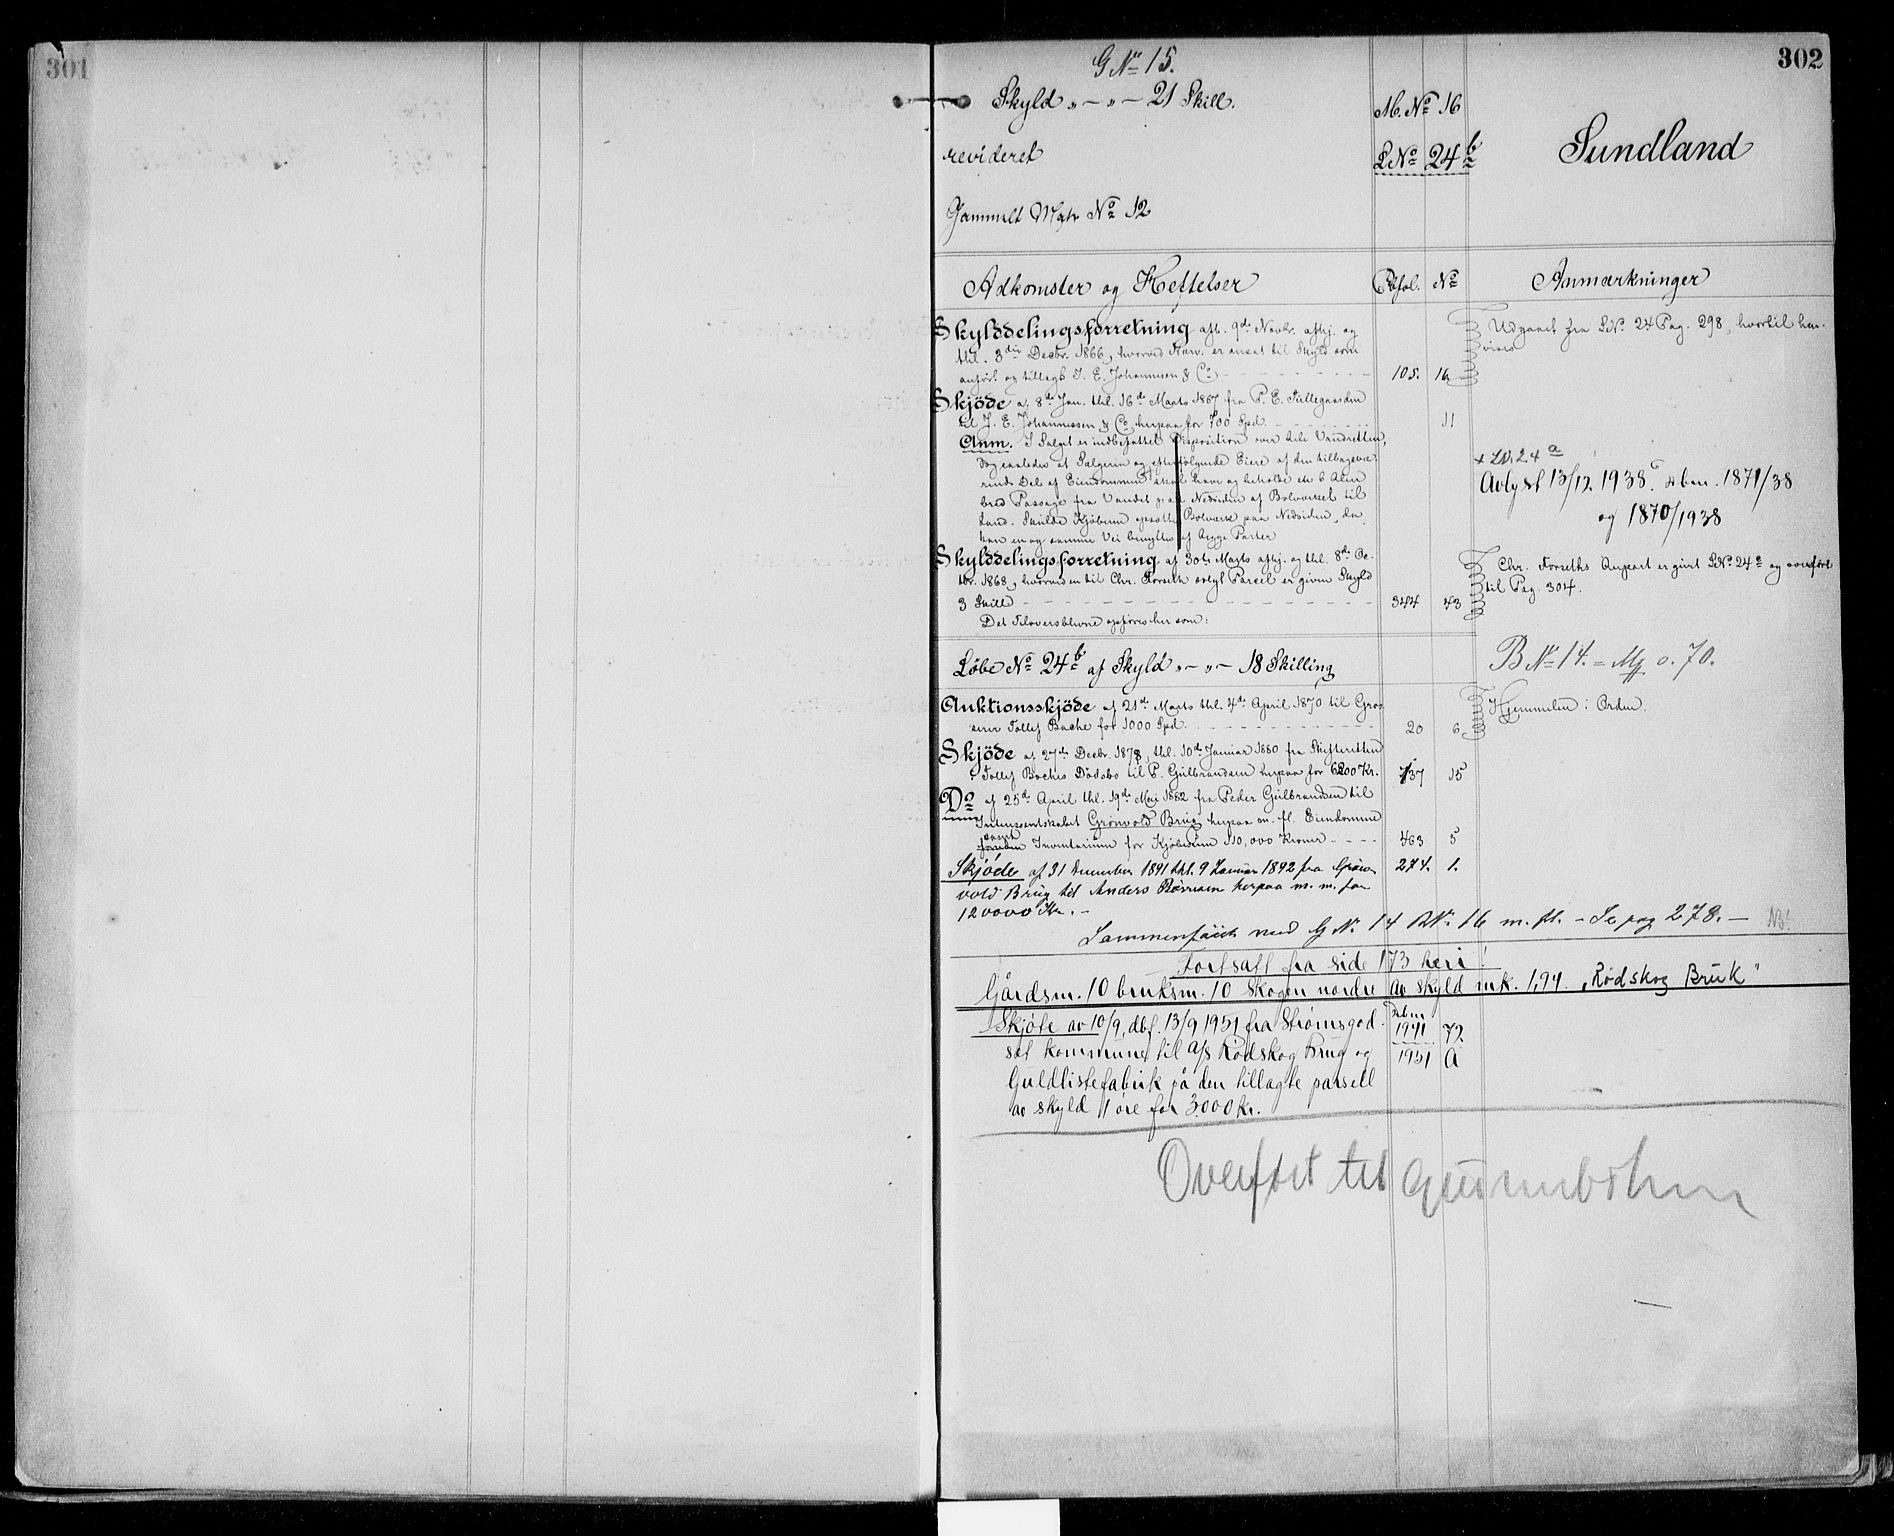 301
302
G№ 15.
Skyld „ – „ – 21 Skill.
M. № 16
revideret
L№ 24 b
Sundland
Gammelt Matr № 12
Adkomster og Heftelser
Pfol. №
Anmærkninger
Skylddelingsforretning afh. 9de Novbr. afhj. og
thl. 3die Decbr. 1866, hvorved Harv. er ansat til Skyld som
anført og tillagt J. E. Johannesen & Co – – – 105. 16.
Udgaaet fra L№ 24 Pag. 298, hvortil hen-
vises
Skjöde af 8de Jan. thl. 16de Marts 1867 fra P. E.
til J. E. Johannessen & Co herpaa for 700 Spd. – – – 11
Anm. I Salget er indbefattet Disposition over hele Vandretten,
dog saaledes at Sælgeren og efterfølgende Eiere af den tilbagevæ-
rende Del af Eiendommen skal have og beholde en 6 Alen
bred Passage fra Vandet paa Nedsiden af Bolverket til
Land. Skulde Kjøberen opsætte Bolværk paa Nedsiden, da
kan en og samme Vei benyttes af begge Parter
+ L№ 24 a
Avlyst 13/12 1938. dbnr. 1871/38
og 1870/1938
Skylddelingsforretning af 30te Marts afhj. og thl. 8de Oc-
tbr. 1868, hvorved en til Chr. Forseth solgt Parcel er given Skyld
3 Skill – – – 344 43
Det Tiloversblevne opføres her som:
Chr. Forseths Anpart er givet L№ 24 c og overført
til Pag. 304.
Løbe № 24 b af Skyld „ – „ – 18 Skilling
B № 14. = Mk 0.70.
Auktionsskjöde af 21de Marts thl. 4de April 1870 til Gros-
serer Tollef Bache for 1000 Spd. – – – 20 6
Hjemmelen i Orden.
Skjöde af 27de Decbr. 1878, thl. 10de Januar 1880 fra Skifteretten
i Tollef Baches Dødsbo til P. Gulbrandsen herpaa for 6200 Kr. 737 15
Do af 25de April thl. 19de Mai 1882 fra Peder Gulbrandsen til
Interessentskabet Grønvold Brug herpaa m. fl. Eiendomme
samt
foruden Inventarium for Kjøbesum 110,000 Kroner – – – 463 5
Skjöde af 31 December 1891 thl. 9 Januar 1892 fra Grön- 274. 1.
vold Brug til Anders Börresen herpaa m. m. for
120000 Kr. –
Sammenföiet med G№ 14 B№ 16 m. fl. – Se pag 278. – NB!
Fortsatt fra side 173 heri!
Gårdsnr. 10 bruksnr. 10 Skogen nordre av skyld mk. 1,94. „Rødskog Bruk"
Skjøte av 10/9, dbf. 13/9 1951 fra Strømsgod-
dbnr
1941 72
set kommune til A/S Rødskog Brug og
1951 A
Guldlistefabrik på den tillagte parsell
av skyld 1 øre for 3000 kr.
Overført til